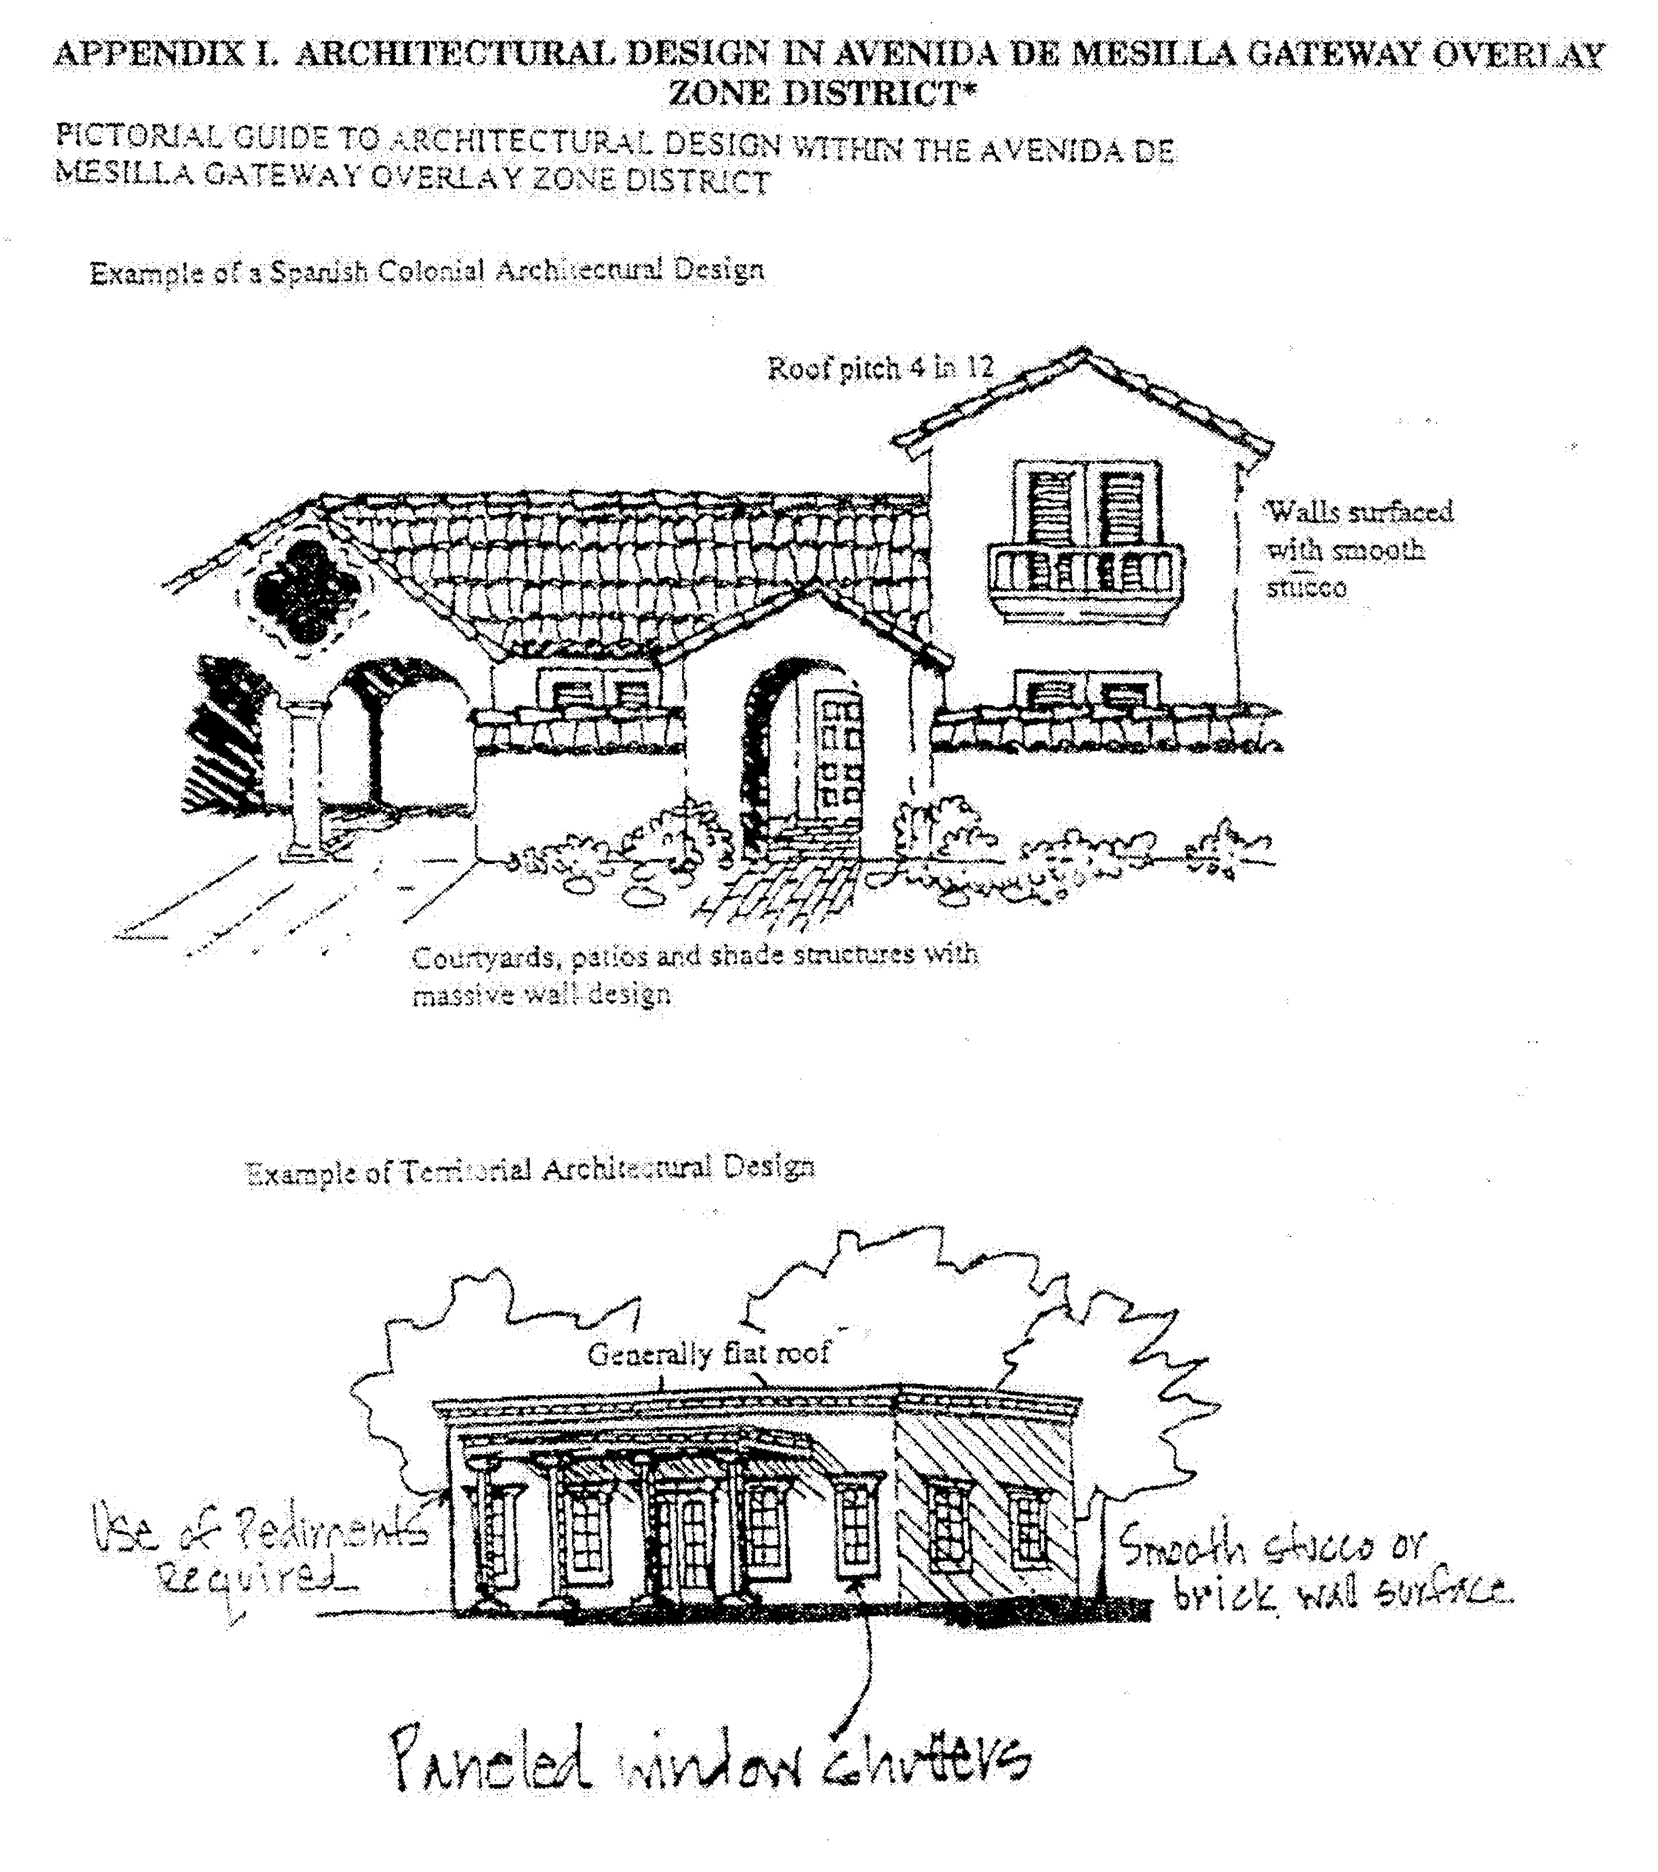 APPENDIX I. ARCHITECTURAL DESIGN IN AVENIDA DE MESILLA GATEWAY OVERLAY
ZONE DISTRICT*
PICTORIAL GUIDE TO ARCHITECTURAL DESIGN WITHIN THE AVENIDA DE
MESILLA GATEWAY OVERLAY ZONE DISTRICT
Example of a Spanish Colonial Architectural Design
Roof pitch 4 in 12
Walls surfaced
with smooth
stucco
Courtyards, patios and shade structures with
massive wall design
Example of Territorial Architectural Design
Generally flat roof
Use of Pediments
Required
Smooth stucco or
brick wall surface.
Paneled window shutters